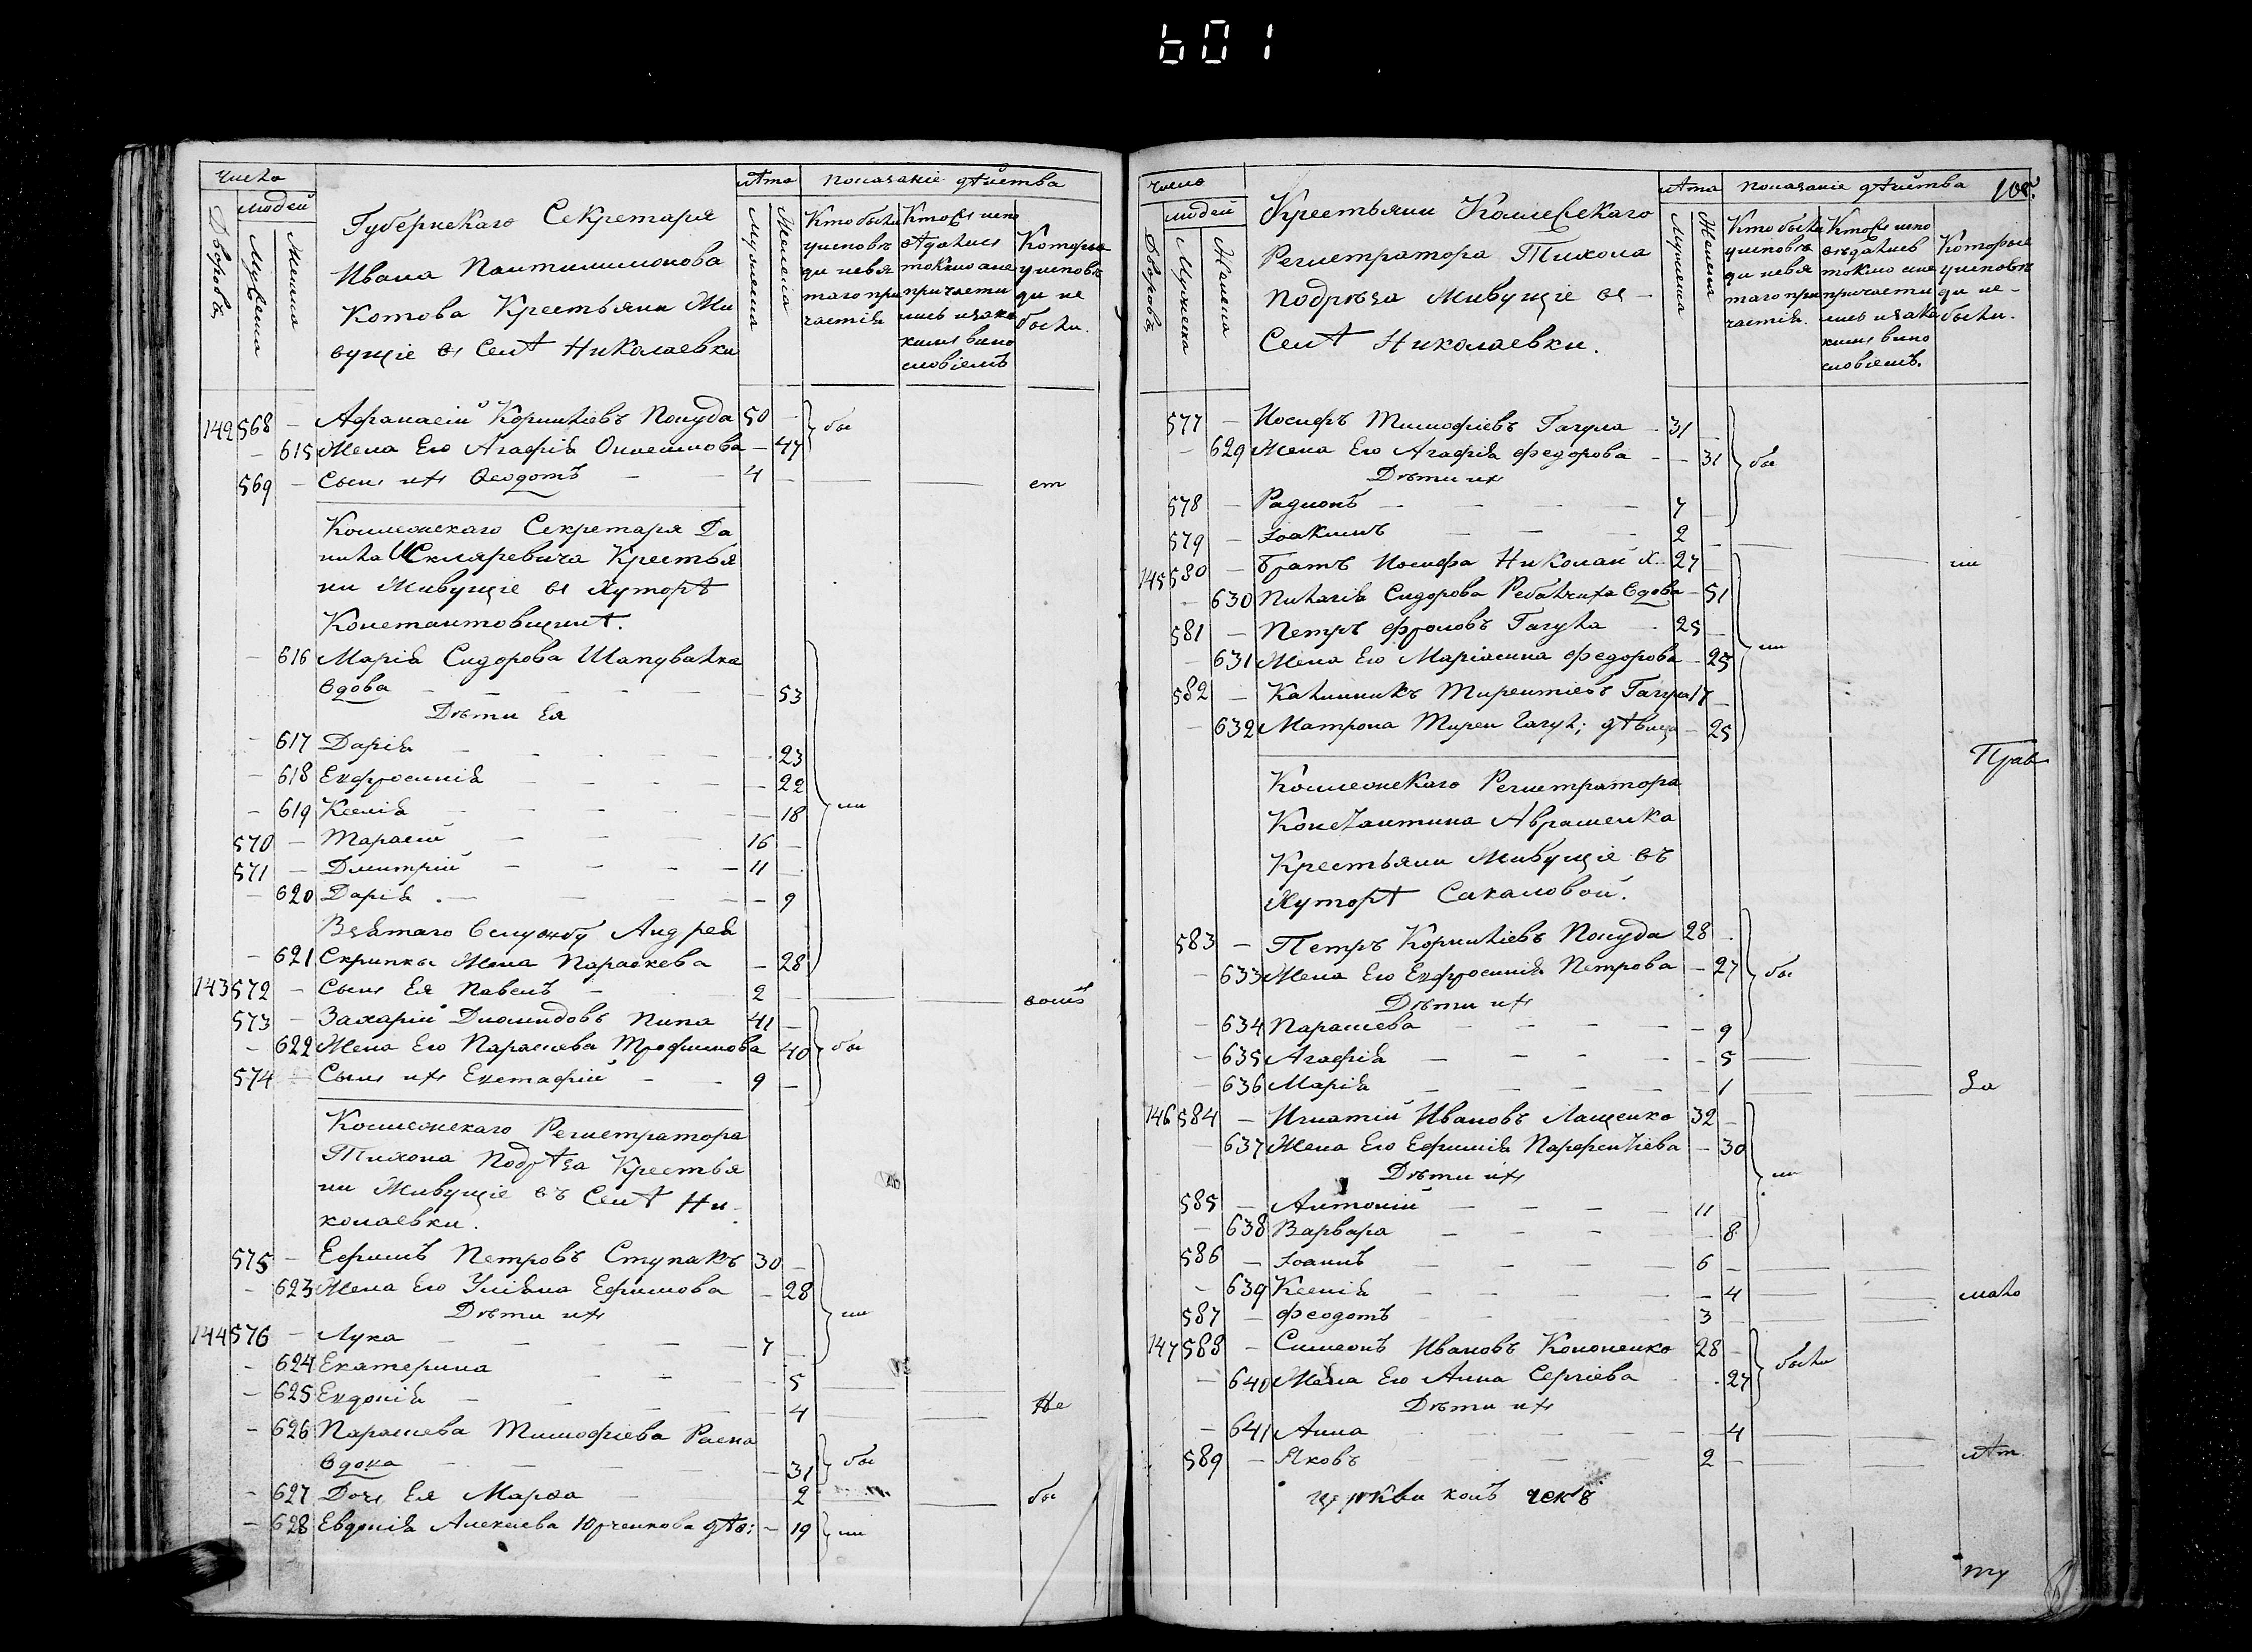 601
Числа
людей
Дворовъ
Мужеска
Женска
Губернскаго Секретаря
Ивана Пантилимонова
Котова Крестьяни Жи
вущіе въ Селѣ Николаевки
лѣта
Мужеска
Женска
показаніе дѣйства
Кто были
у исповѣ
ди и свя
таго при
частія
Кто испо
вѣдались
токмо а не
причасти
лись и за ка
кимъ вино
словіемъ
Которые
у исповѣ
ди не
были.
142 568 - Афанасій Корнилievъ Полуда 50 - бы
- 615 Жена Его Агафія Онисимова - 47
569 - Сынъ ихъ Ѳеодотъ 4 - ст
Коллежскаго Секретаря Да
нила Шкляревича Крестья
ни Живущіе въ Хуторѣ
Константовщинѣ.
- 616 Марія Сидорова Шаповалка
вдова - 53
Дѣти Ея
- 617 Дарія - 23
- 618 Екфросинія - 22
- 619 Ксенія - 18 ли
570 - Тарасій 16 -
571 - Дмитрій 11 -
- 620 Дарія - 9
Взятаго вслужбу Андрея
- 621 Скрипки Жена Параскева - 28
143 572 - Сынъ Ея Павелъ 2 -
573 - Захарій Диомидовъ Пипа 41 -
- 622 Жена Его Параскева Трофимова - 40 бы
574 - Сынъ ихъ Евстафій 9 -
Коллежскаго Регистратора
Тихона Подрѣза Крестья
ни Живущіе въ Селѣ Ни
колаевки.
575 - Ефимъ Петровъ Ступакъ 30 -
- 623 Жена Его Уліяна Ефимова - 28
Дѣти ихъ ли
144 576 - Лука 7 -
- 624 Екатерина - 5
- 625 Евдокія - 4 Не
- 626 Параскева Тимофіева
вдова - 31 бы
- 627 Дочь Ея Марѳа 2 бы
- 628 Евдокія Алексіева Юрченкова дѣв: - 19 ли
число
людей
Дворовъ
Мужеска
Женска
Крестьяни Коллежскаго
Регистратора Тихона
Подрѣза Живущіе въ
Селѣ Николаевки.
лѣта
Мужеска
Женска
показаніе дѣйства
Кто были
у исповѣ
ди и свя
таго при
частія.
Кто испо
вѣдались
токмо а не
причасти
лись и за ка
кимъ вино
словіемъ.
Которые
у исповѣ
ди не-
были.
577 - Иосифъ Тимофіевъ Гагула 31 -
- 629 Жена Его Агафія Федорова - 31 бы
Дѣти ихъ
578 - Радионъ 7 -
579 - Іоакимъ 2 -
145 580 - Братъ Иосифа Николай Х. 27 - ли
- 630 Пилагія Сидорова вдова - 51
581 - Петръ Фроловъ Гагула 25 -
- 631 Жена Его Маріамна Федорова - 25 ли
582 - Калинникъ Тирентіевъ Гагула 17 -
- 632 Матрона Тирен Гагул; дѣвица - 25
Прав
Коллежскаго Регистратора
Константина Авраменка
Крестьяни Живущіе въ
Хуторѣ Сакаловой.
583 - Петръ Корниліевъ Полуда 28 -
- 633 Жена Его Екфросинія Петрова - 27 бы
Дѣти ихъ
- 634 Параскева - 9
- 635 Агафія - 5
- 636 Марія - 1 За
146 584 - Игнатій Ивановъ Лащенко 32 -
- 637 Жена Его Ефимія Парфиліева - 30
Дѣти ихъ ли
585 - Антоній 11
- 638 Варвара - 8
586 - Іоаннъ 6 -
- 639 Ксенія - 4 мало
587 - Феодотъ 3
147 588 - Симеонъ Ивановъ Кононенко 28 - были
- 640 Жена Его Анна Сергіева - 27
Дѣти ихъ
- 641 Анна - 4
589 - Яковъ 2 - лѣт
ту